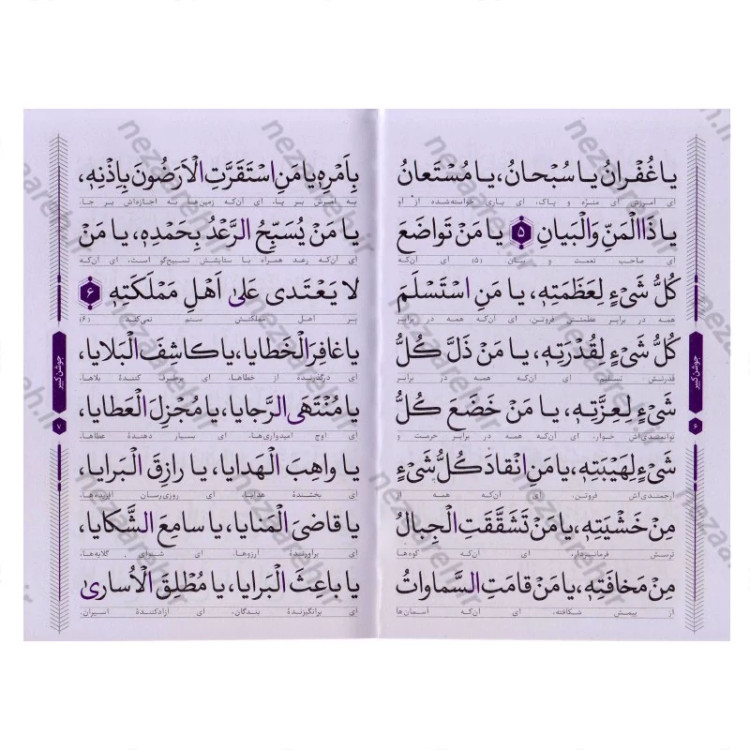 یا غُفْرانُ یا سُبْحانُ، یا مُسْتَعانُ
ای آمرزش ای منزه و پاک، ای یاری خواسته‌شده از او
یا ذَا الْمَنِّ وَ الْبَیانِ ۵ یا مَنْ تَواضَعَ
ای صاحب نعمت و بیان (۵) ای آن‌که
کُلُّ شَیْءٍ لِعَظَمَتِهٖ، یا مَنِ اسْتَسْلَمَ
همه در برابر عظمتش فروتن، ای آن‌که همه در برابر
کُلُّ شَیْءٍ لِقُدْرَتِهٖ، یا مَنْ ذَلَّ کُلُّ
قدرتش تسلیم ای آن‌که همه در برابر
شَیْءٍ لِعِزَّتِهٖ، یا مَنْ خَضَعَ کُلُّ
توانمندی‌اش خوار، ای آن‌که همه در برابر حرمت و
شَیْءٍ لِهَیْبَتِهٖ، یا مَنِ انْقادَ کُلُّ شَیْءٍ
ارجمندی‌اش فروتن، ای آن‌که همه از
مِنْ خَشْیَتِهٖ، یا مَنْ تَشَقَّقَتِ الْجِبالُ
ترسش فرمانبردار، ای آن‌که کوه‌ها
مِنْ مَخافَتِهٖ، یا مَنْ قامَتِ السَّماواتُ
از بیمش شکافته، ای آن‌که آسمان‌ها
جوشن کبیر
۶
بِاَمْرِهٖ یا مَنِ اسْتَقَرَّتِ الْاَرَضُونَ بِاِذْنِهٖ،
به امرش بر پا، ای آن‌که زمین‌ها به اجازه‌اش بر جا،
یا مَنْ یُسَبِّحُ الرَّعْدُ بِحَمْدِهٖ، یا مَنْ
ای آن‌که رعد همراه با ستایشش تسبیح‌گو است، ای آن‌که
لا یَعْتَدی عَلیٰ اَهْلِ مَمْلَکَتِهٖ ۶
بر اهل مملکتش ستم نمی‌کند (۶)
یا غافِرَ الْخَطایا، یا کاشِفَ الْبَلایا،
ای درگذرنده از خطاها، ای برطرف کنندهٔ بلاها،
یا مُنْتَهَی الرَّجایا، یا مُجْزِلَ الْعَطایا،
ای اوج امیدواری‌ها، ای بسیار دهندهٔ عطاها،
یا واهِبَ الْهَدایا، یا رازِقَ الْبَرایا،
ای بخشندهٔ هدایا، ای روزی‌رسان آفریده‌ها،
یا قاضِیَ الْمَنایا، یا سامِعَ الشَّکایا،
ای برآورندهٔ آرزوها، ای شنوای گلایه‌ها،
یا باعِثَ الْبَرایا، یا مُطْلِقَ الْاُساریٰ
ای برانگیزندهٔ بندگان، ای آزادکنندهٔ اسیران.
جوشن کبیر
۷
nezaareh.ir